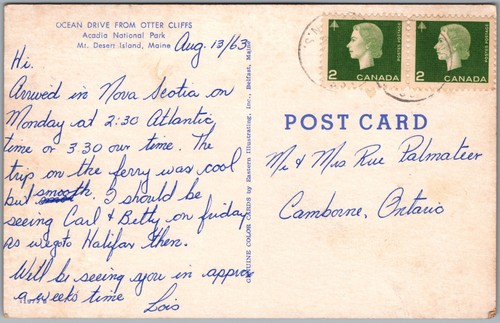 OCEAN DRIVE FROM OTTER CLIFFS
Acadia National Park
Mt. Desert Island, Maine
Aug. 13/63
Hi.
Arrived in Nova Scotia on
Monday at 2:30 Atlantic
time or 3 30 our time. The
trip on the ferry was cool
but smooth. I should be
seeing Carl & Betty on friday
as we go to Halifax then.
We'll be seeing you in approx
a weeks time
Lois
GENUINE COLOR CARDS by Eastern Illustrating, Inc., Belfast, Maine
POSTES POSTAGE
2 CANADA
POSTES POSTAGE
2 CANADA
POST CARD
Mr & Mrs Rue Palmateer
Camborne, Ontario